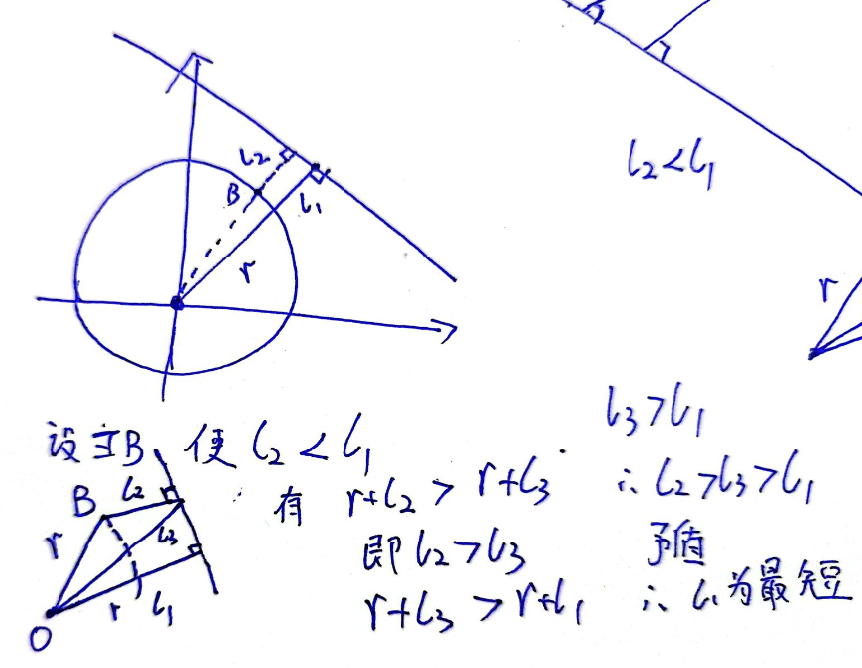 l₂
B
l₁
r
l₂<l₁
r
设立B 使 l₂<l₁
B
l₂
r
l₃
r
l₁
O
有 r+l₂>r+l₃
即 l₂>l₃
r+l₃>r+l₁
l₃>l₁
∴ l₂>l₃>l₁
矛盾
∴ l₁为最短